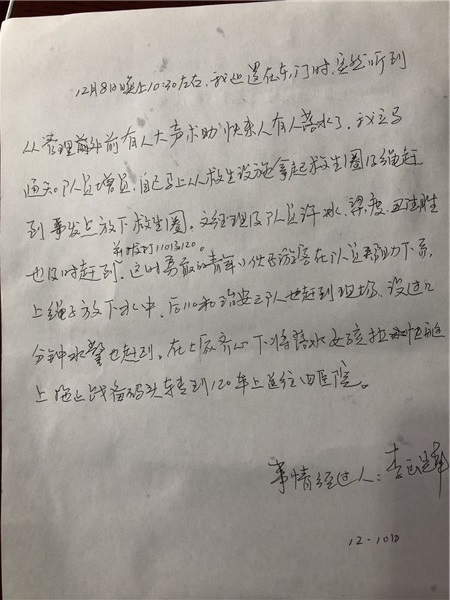 12月8日晚上10:30左右,我巡逻在东门时,突然听到
从管理前有人大声求助快来人有人落水了。我立马
通知队员增员,自己马上从救生设施拿起救生圈及绳赶
到事发点放下救生圈。文经理及队员许冰、梁
并拨打110、120。
也及时赶到。这时勇敢的青年小伙子游客在队员帮助下系
上绳子放下水中,后110和治安三队也赶到现场,没过几
分钟水警也赶到。在大家齐心下将落水女孩拉上快艇
上拖上战备码头转到120车上送往医院。
事情经过人:李
12-10日